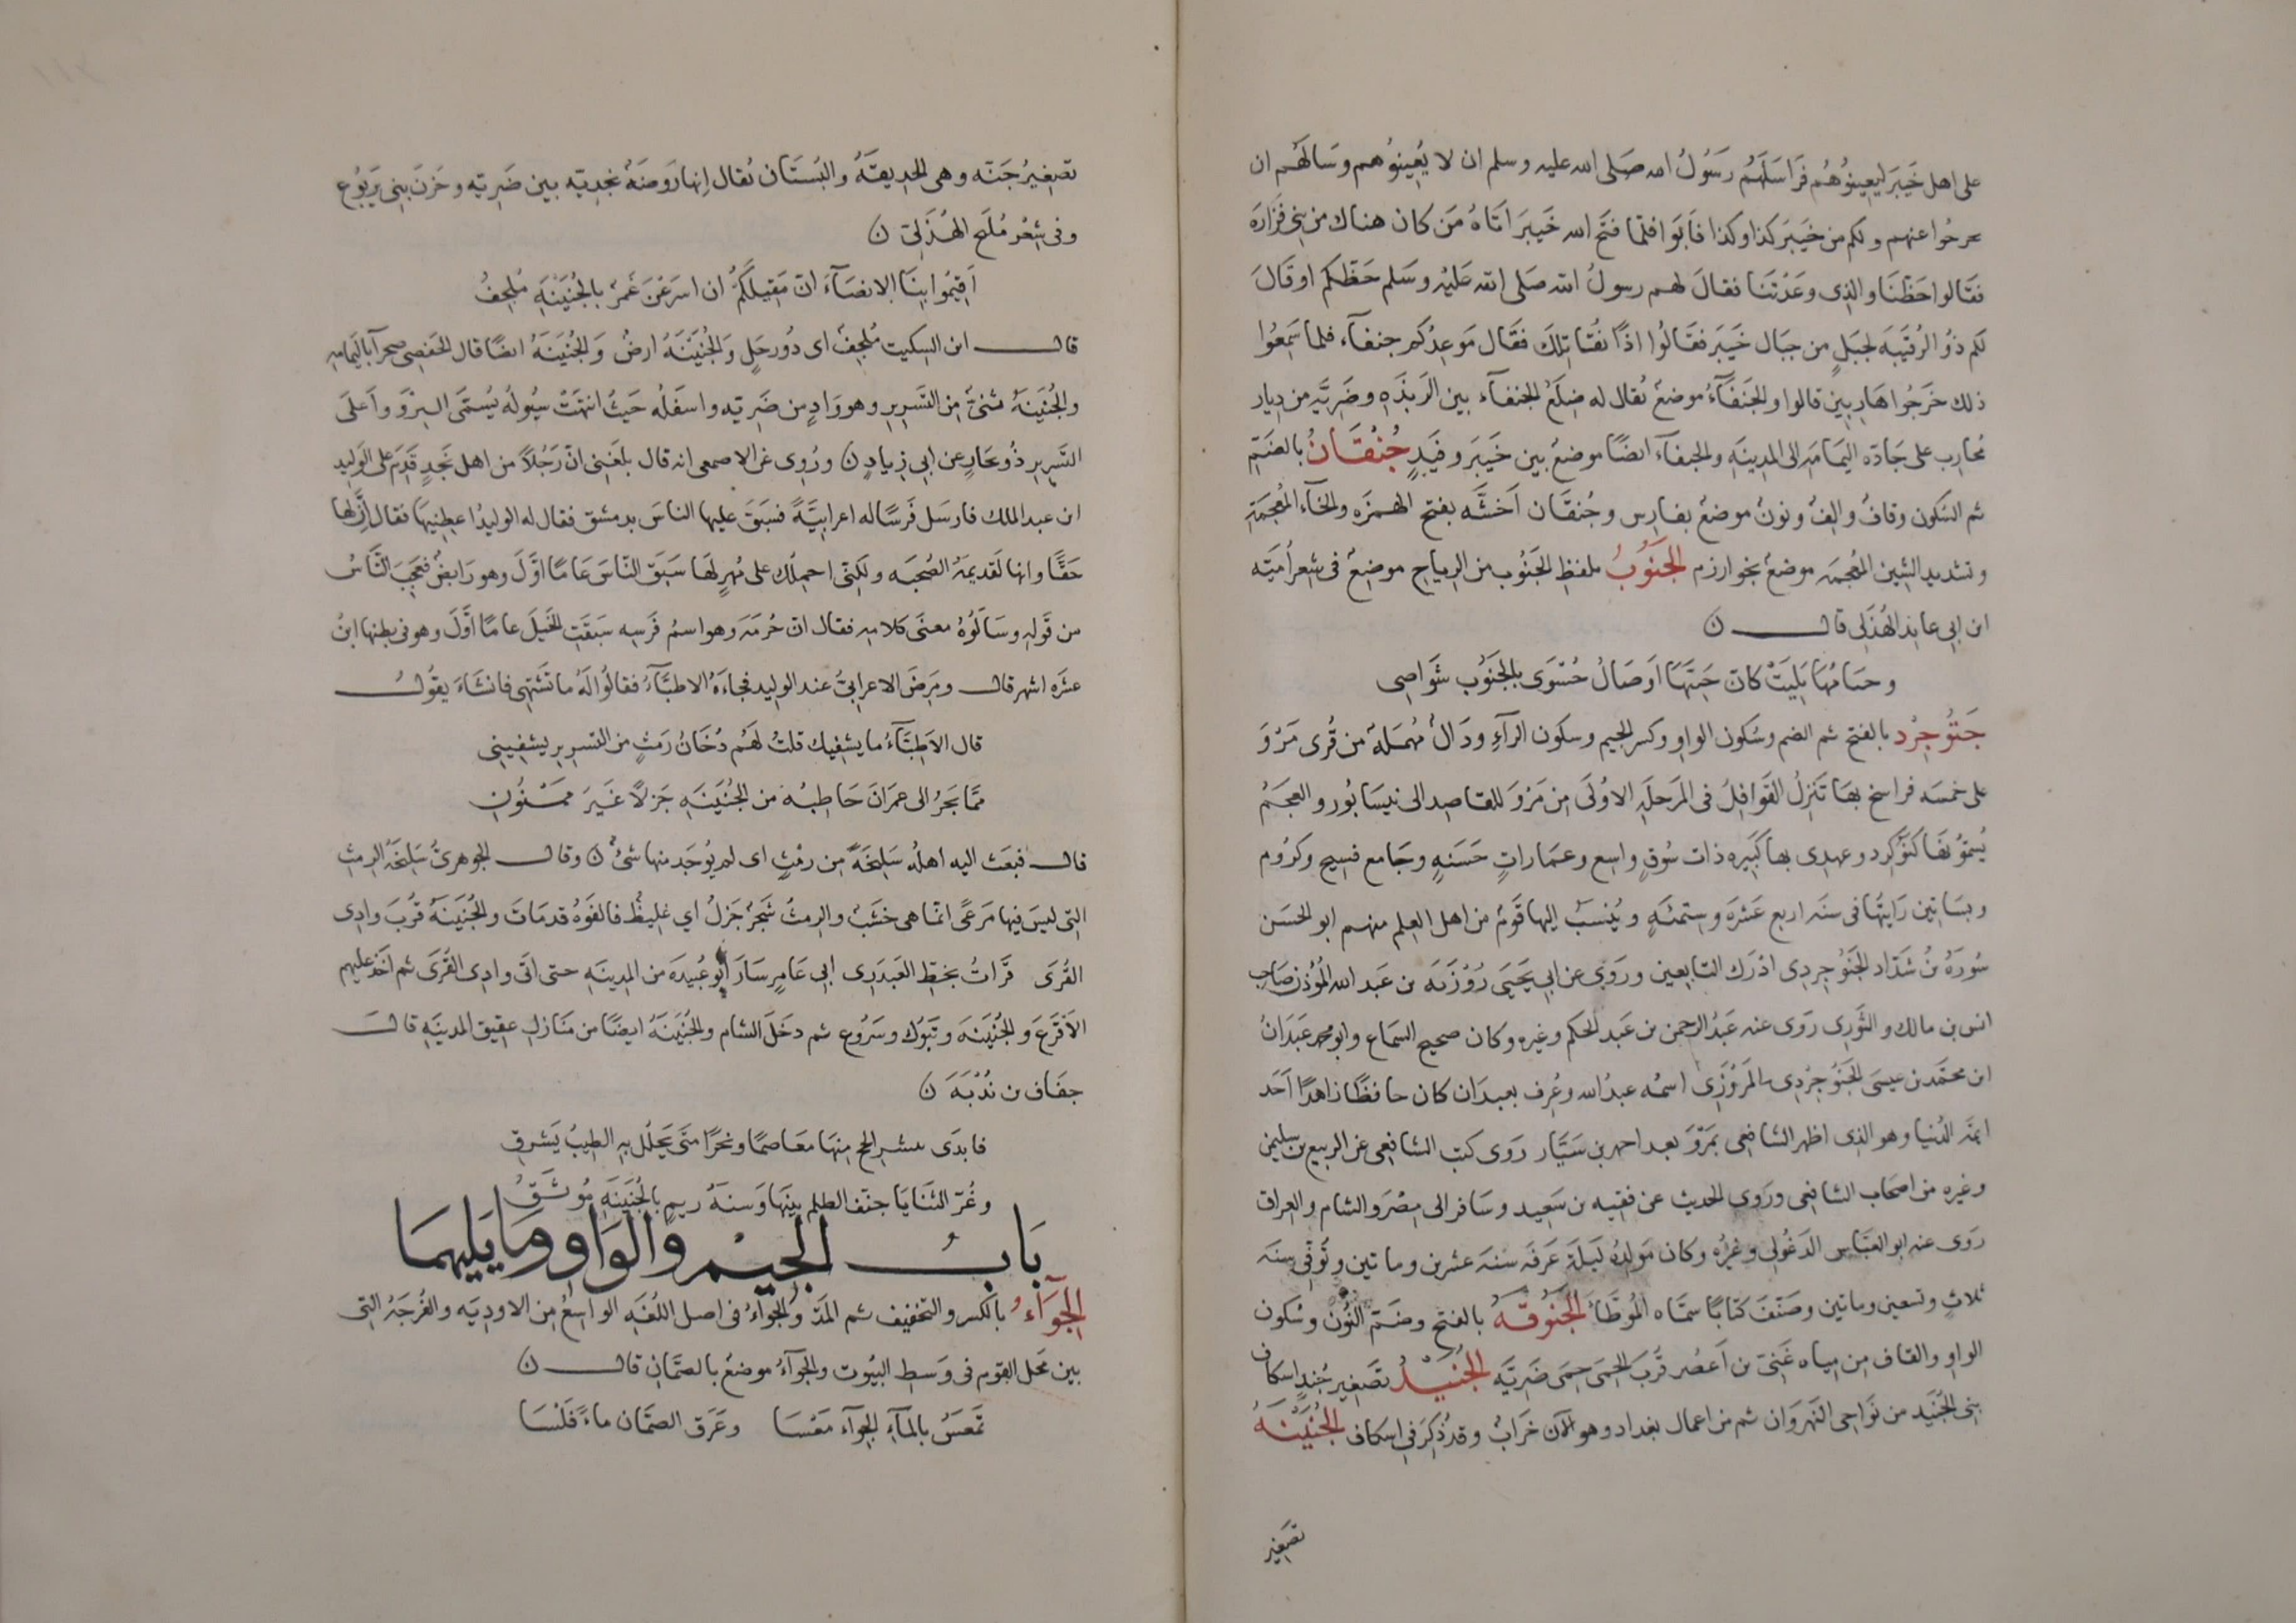 على اهل خَيبَر ليُعِينوُهُم فَرَاسَلَهُم رَسُولُ الله صَلى الله عليه وسلم ان لا يُعِينوُهم وسَالَهُم ان
يخرجُوا عنهم ولكم من خَيبَر كذا وكذا فَابَوا فلما فتَح الله خَيبَر اتَاهُ مَن كان هناك من بني فَزَارَة
فقَالوا حَظّنَا والذِى وعَدْتَنَا فقالَ لهم رسولُ الله صَلى الله عَليْه وسَلم حَظّكم او قَالَ
لكم ذوُ الرُقَيْبَه لجَبَلٍ من جبَال خَيبَر فقَالُوا اذًا نقُاتِلكَ فقَال مَوعِدُكم جنفآء فلما سَمِعُوا
ذلك خَرَجُوا هَارِبِين قالوا والجَنَفَآءُ موضعٌ يُقال له ضِلَعُ الجنفآء بين الرَبَذَهِ وضَرِيَّه من دِيار
مُحارِب على جَادَه اليَمَامَه الى المدِينَهِ والجنفآء ايضًا موضعٌ بين خَيبَر وفَيدٍ جُنْقَانُ بالضَّمّ
ثم السُكون وقافٌ والِفٌ ونونٌ موضعٌ بفارِس وجُنقَان اَخشَّه بفتح الهمزَهِ والخآء المُعجَمَةِ
وتشديد الشِين المُعجمَه موضعٌ بخوارزم الجَنُوبُ بلفظِ الجَنُوب من الرياح موضِعٌ في شِعر اُميَّه
ابن ابي عايذ الهُذَلي قال ن
وحمامُها بَلِيَتْ كانّ حَنِيَّهَا اَوصَالُ حُسْرَى بالجَنوُب شَوَاصِى
جَنُوجِرْد بالفتح ثم الضم وسُكون الواوِ وكسر الجيم وسكون الرآءِ ودَالٌ مُهمَلةٌ من قُرى مَرْوَ
على خمسَه فراسخ بها تَنزِلُ القَوَافِلُ في المَرحَلَهِ الاوُلَى مِن مَرْوَ للقاصِد الى نيسَابُور والعجَمُ
يُسَمّوُنهَا كنُوكِرد وعهدِى بها كَبِيره ذات سُوقٍ واسِع وعمَاراتٍ حَسَنهٍ وجَامع فسِيح وكرُومٍ
وبسَاتِين رَايتُهَا في سنَه اربع عَشرَه وستمئَهٍ ويُنسَبُ اليها قَومٌ من اهل العِلم منهم ابو الحسَن
سُورَهُ بنُ شدّاد الجَنُوجِردِى ادْرَك التابِعين ورَوَى عن ابي يَحيَى زوُزَبَه بن عَبد الله المُؤذن صَاحِب
انس بن مالك والثَورِى رَوى عنه عَبدُ الرحمن بن عَبد الحكم وغيره وكان صحيح السمَاع وابو محمد عَبدَانُ
ابن محمّد بن عيسَى الجَنُوجِرْدِى المَروَزِى اسمُه عبدُ الله وعُرِف بعبدَان كان حافظًا زاهدًا اَحَد
ايمّه الدُنيا وهو الذِى اظهر الشافعى بمَروَ بعد احمد بن سَيَّار رَوى كتب الشافِعى عن الربيع بن سليمن
وغيره من اصحَاب الشافِعى ورَوى الحدِيث عن قتيبه بن سَعِيد وسَافر الى مِصْرَ والشام والعراق
رَوى عنه ابو العبَّاس الدَغُولى وغيرُه وكان مَولِدُه لَيلَةِ عَرفَه سنَه عشرين وماتين وتُوفّى سنَه
ثلاثٍ وتسعين وماتين وصَنّفَ كتابًا سَمَّاه المُوطَّأ الجَنُوقَهُ بالفتح وضَمّ النُون وسُكون
الواوِ والقاف مِن مِياه غَنِىّ بن اَعصُر قُربَ الحِمَى حِمَى ضَرِيَّه الجُنَيْدُ تصغِير جُندٍ اسكاف
بنِى الجُنيَد من نَوَاحِى النَهرَوان ثم من اعمال بغداد وهو الآن خَرابٌ وقد ذكِرَ في اسكاف الجُنَيْنَهُ
تصَغِير
تصَغِيرُ جَنّه وهى الحدِيقَهُ والبُستَان يُقال اِنها رَوضَهٌ نجدِيّه بين ضَرِيّه وحَزنَ بنِى يَربُوع
وفى شِعْر مُلَيح الهُذَلِىّ ن
اَقِيمُوا بِنَا الانضَآءَ انّ مَقِيلَكمُ ان اسرَعْنَ غَمرٌ بالجُنَيْنَهِ مُلجِفُ
قال ابن السِكيت مُلجِفٌ اى دُو دِحَلٍ والجُنَيْنَهُ ارضٌ والجُنَينَهُ ايضًا قال الحَفصِى صحرآ باليَمامَهِ
والجُنَيَنَهُ ثنىٌ مِن التَسرِيرِ وهو وَادٍ من ضَرِيّه واسفَلُه حَيثُ انتَهَتْ سيُولهُ يُسمَّى السِرَّ وَاَعلَى
التَسرِيرِ ذُو بحَارٍ عن ابي زيادٍ ن ورُوِى عَن الاصمعى انه قال بلغنِى انّ رَجُلاً من اهل نَجدٍ قَدِم على الوَلِيد
ابن عبد الملك فارسَل فَرسًا له اعرابيّهً فسَبَقَ عليها الناسَ بدمشق فقال له الوليدُ اعطِنيِهَا فقال اِنَّ لها
حَقًّا وانها لقَدِيمَهُ الصُحبَه ولكنِى احمِلُك على مُهرٍ لهَا سَبَقَ النَاسَ عَامًا اوَّلَ وهو رَابِضٌ فعَجِبَ النَّاسُ
من قَولِهِ وسَالوُهُ معنَى كلامهِ فقال انّ حُزمَهَ وهو اسمُ فَرَسِه سَبَقَتِ الخَيلَ عامًا اَوَّلَ وهو فى بطنِها ابنُ
عشَره اشهر قال ومَرِضَ الاعرابِىُّ عند الوليد فجاءَهُ الاطبَّآءُ فقالوُا لهُ ما تشتَهِى فانشَاءَ يقوُلُ
قال الاَطِبَّآءُ ما يشفِيك قلتُ لهمُ دُخَانُ رَمثٍ من التَسرِيرِ يشفِينِى
ممَّا يَجرُ الى عِمرَانَ حَاطِبُه من الجُنَيَنَهِ جَزلاً غَيرَ مَمْنُونِ
قال فبعَث اليه اهلُه سَلِيخَهً مِن رمْثٍ اى لم يُوجَد منها شئٌ ن وقال الجوهرىُّ سَلِيخَهُ الرِمثِ
التِى ليسَ فيها مَرعًى انمّا هى خشَبٌ والرمثُ شَجَرٌ جَزلٌ اى غليِظٌ فالفَوهُ قد مَاتَ والجُنَينَهُ قُربَ وادِى
القُرَى قرَاتُ بخَطّ العَبدَرِى ابى عَامرٍ سَارَ ابو عُبَيدَه من المدِينَهِ حتى اتَى وادِى القُرَى ثم اخَذ عليهم
الاَقرَعَ والجُنَيْنَهَ وتَبوُك وسَرُوع ثم دخَلَ الشام والجُنَيْنَهُ ايضًا من مَنَازلِ عقِيق المدينَهِ قال
جفَاف بن نُدْبَهَ ن
فابدَى بشير الحج منِهَا معَاصمًا ونحرًا متَى يَحلُل بهِ الطِيبُ يَشرقِ
وغُرّ الثنَايَا جنّف الظلم بينَهَا وَسنَهُ رِيمٍ بالجُنَينَهِ مُوثَقُ
بَابُ الجِيْمِ والوَاوِ ومَا يَليهمَا
الجِوَآءُ بالكسر والتخفيف ثم المَدّ والجِوَآءُ فى اصل اللُغَهِ الواسِعُ مِن الاودِيَه والفُرجَهُ التِى
بين مَحَل القوم فى وَسَطِ البيُوت والجِوَآءُ موضعٌ بالصمَّانِ قال ن
تمَعسُ بالمآءِ الجِوآءَ مَعْسَا وغَرَق الصمَّان ماءً قَلسَا